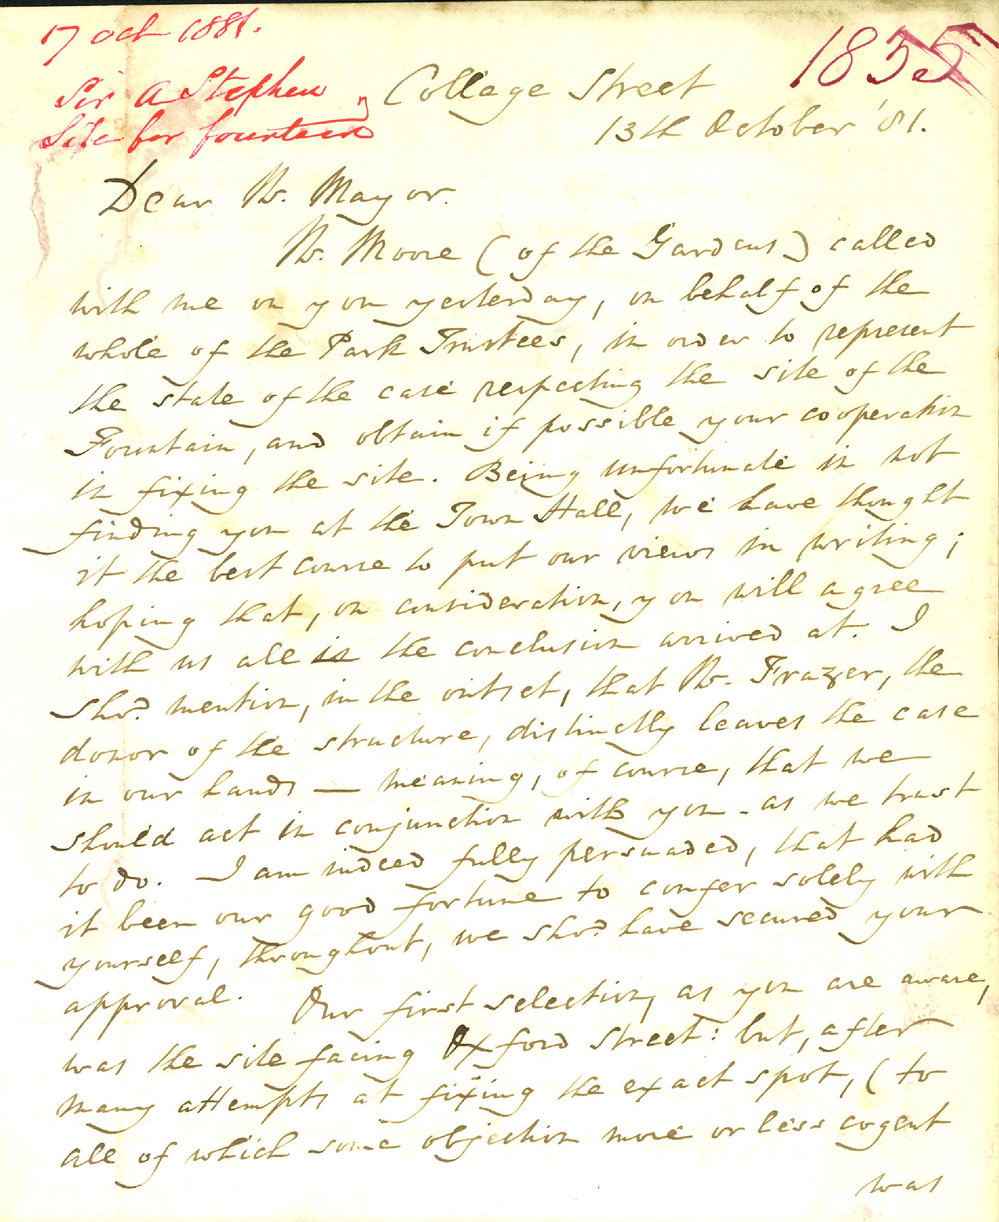 17 Oct 1881.
Sir A Stephen
Site for fountain
1855
College Street
13th October '81.
Dear Mr. Mayor.
Mr. Moore (of the Gardens) called
with me on you yesterday, on behalf of the
whole of the Park Trustees, in order to represent
the state of the case respecting the site of the
Fountain, and obtain if possible your cooperation
in fixing the site. Being unfortunate in not
finding you at the Town Hall, we have thought
it the best course to put our views in writing;
hoping that, on consideration, you will agree
with us all in the conclusion arrived at. I
shod. mention, in the outset, that Mr. Frazer, the
donor of the structure, distinctly leaves the case
in our hands — meaning, of course, that we
should act in conjunction with you - as we trust
to do. I am indeed fully persuaded, that had
it been our good fortune to confer solely with
yourself, throughout, we shod. have secured your
approval. Our first selection, as you are aware,
was the site facing Oxford Street: but, after
many attempts at fixing the exact spot, (to
all of which some objection more or less cogent
was